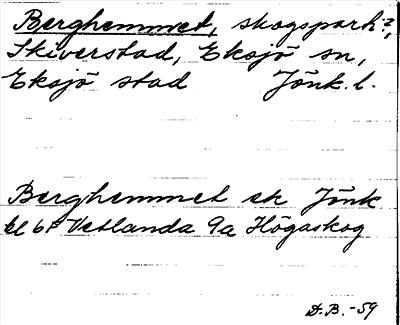 Berghemmet, skogspark?,
Skiverstad, Eksjö sn,
Eksjö stad Jönk. l.
Berghemmet ek Jönk
bl 6F Vetlanda 9a Högaskog
D.B.-59